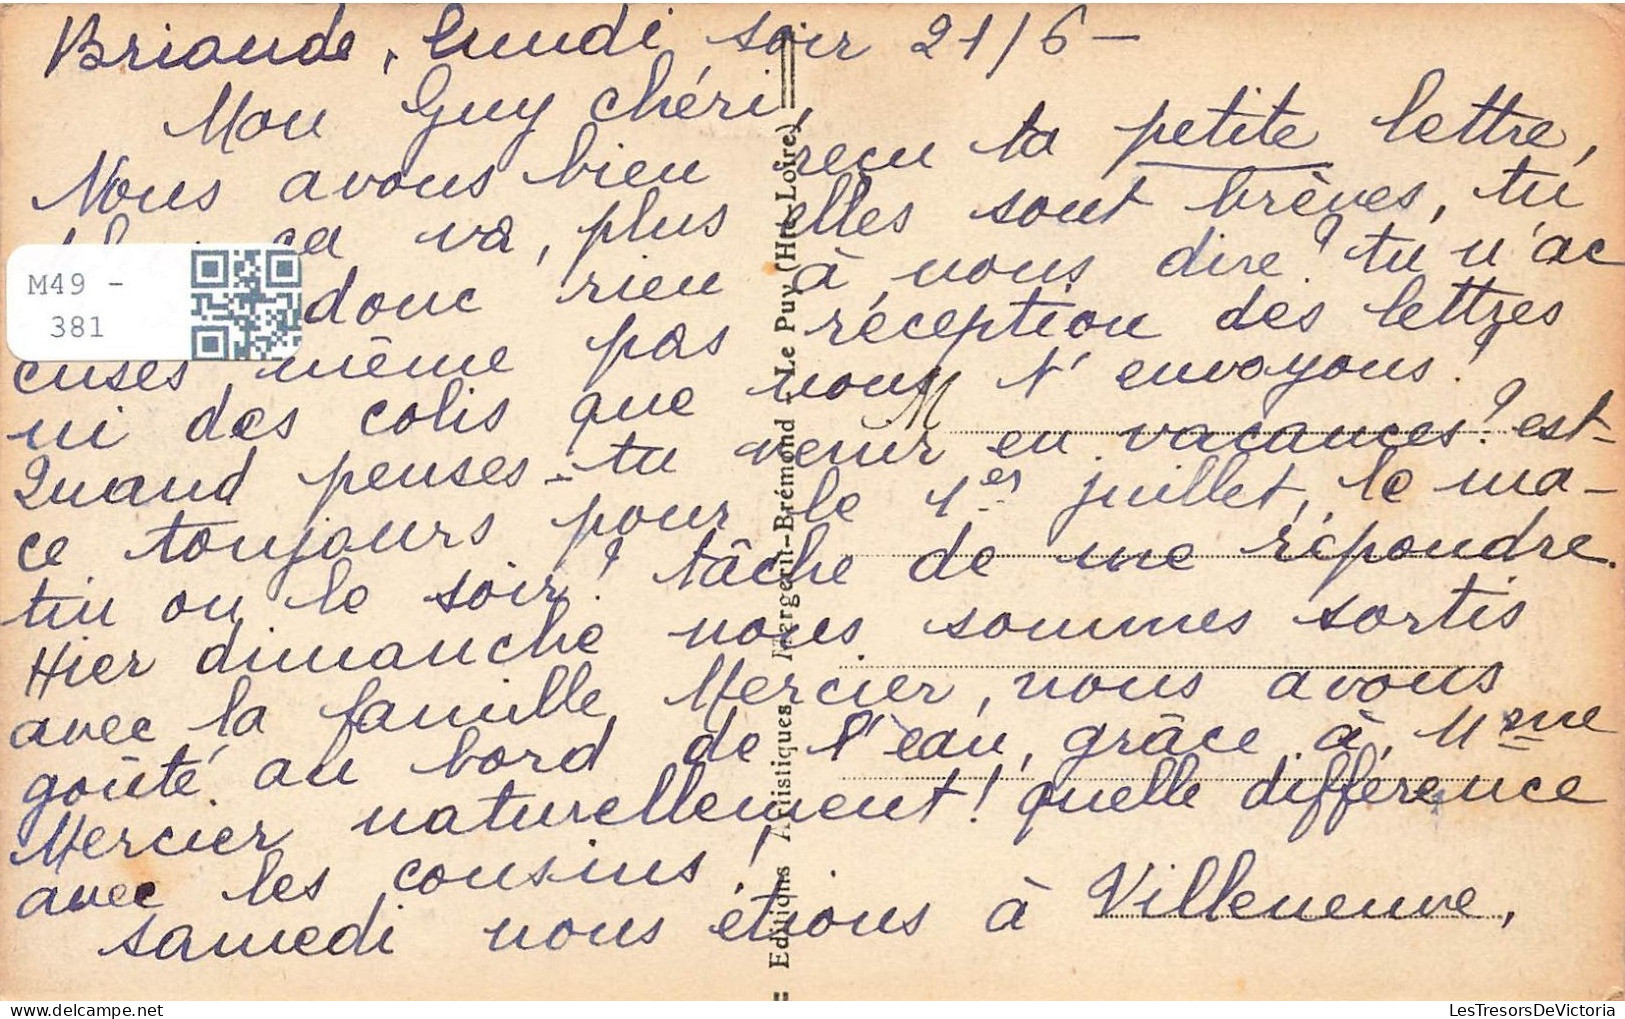 Brioude, lundi soir 21/6 –
Mon Guy chéri,
Nous avons bien reçu ta petite lettre,
ça va, plus elles sont brèves, tu
donc rien à nous dire? tu n'ac
cuses même pas réception des lettres
ni des colis que nous t'envoyons?
Quand penses-tu venir en vacances? est-
ce toujours pour le 1er juillet, le ma-
tin ou le soir? tâche de me répondre.
Hier dimanche nous sommes sortis
avec la famille Mercier, nous avons
goûté au bord de l'eau, grâce à Mme
Mercier naturellement! quelle différence
avec les cousins!
samedi nous étions à Villeneuve,
M
Editions Artistiques Margerit-Brémond - Le Puy (Hte-Loire)
M49 -
381
LesTresorsDeVictoria